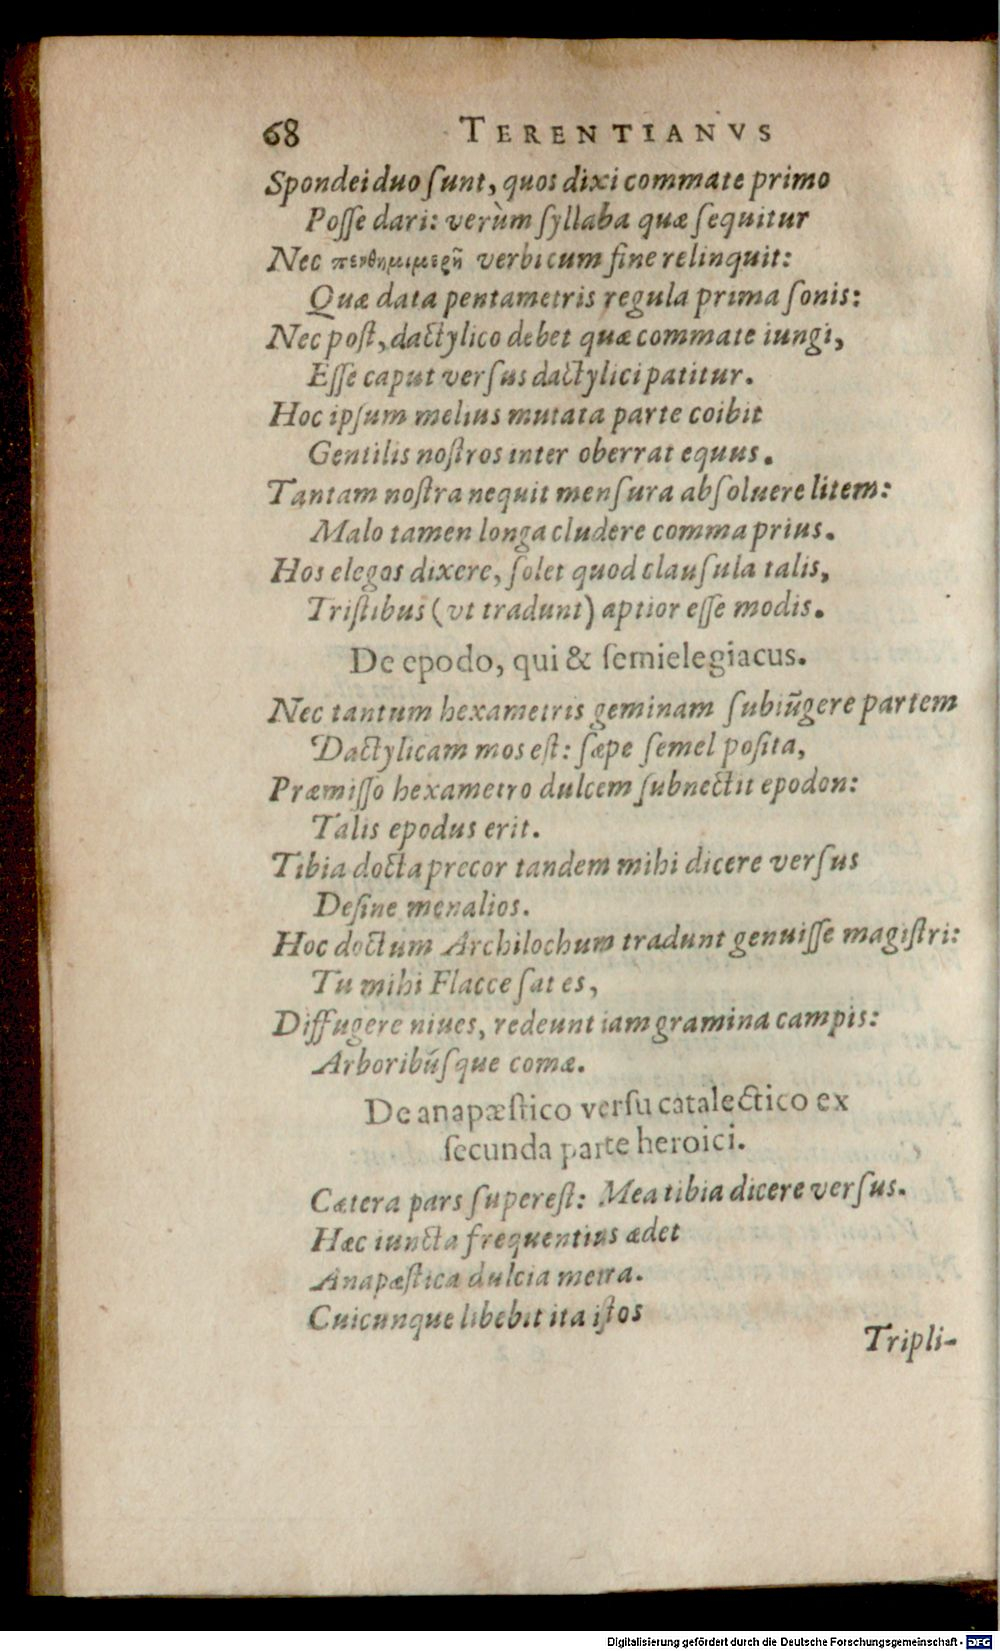 68 TERENTIANVS
Spondei duo ſunt, quos dixi commate primo
Poſſe dari: verùm ſyllaba quæ ſequitur
Nec πενθημιμερῆ verbi cum fine relinquit:
Quæ data pentametris regula prima ſonis:
Nec poſt, dactylico debet quæ commate iungi,
Eſſe caput verſus dactylici patitur.
Hoc ipſum melius mutata parte coibit
Gentilis noſtros inter oberrat equus.
Tantam noſtra nequit menſura abſoluere litem:
Malo tamen longa cludere comma prius.
Hos elegos dixere, ſolet quod clauſula talis,
Triſtibus (vt tradunt) aptior eſſe modis.
De epodo, qui & ſemielegiacus.
Nec tantum hexametris geminam ſubiũgere partem
Dactylicam mos eſt: ſæpe ſemel poſita,
Præmiſſo hexametro dulcem ſubnectit epodon:
Talis epodus erit.
Tibia docta precor tandem mihi dicere verſus
Deſine menalios.
Hoc doctum Archilochum tradunt genuiſſe magiſtri:
Tu mihi Flacce ſat es,
Diffugere niues, redeunt iam gramina campis:
Arboribúſque comæ.
De anapæſtico verſu catalectico ex
ſecunda parte heroici.
Cætera pars ſupereſt: Mea tibia dicere verſus.
Hæc iuncta frequentius ædet
Anapæſtica dulcia metra.
Cuicunque libebit ita iſtos
Tripli-
Digitalisierung gefördert durch die Deutsche Forschungsgemeinschaft - DFG